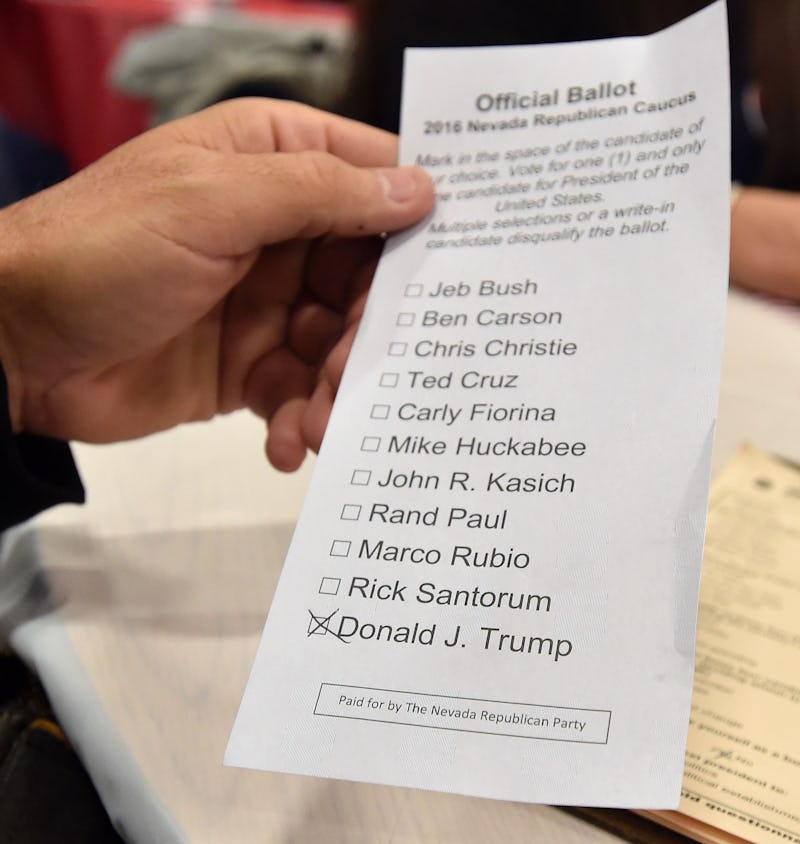 Official Ballot
2016 Nevada Republican Caucus
Mark in the space of the candidate of
choice. Vote for one (1) and only
candidate for President of the
United States.
Multiple selections or a write-in
candidate disqualify the ballot.
Jeb Bush
Ben Carson
Chris Christie
Ted Cruz
Carly Fiorina
Mike Huckabee
John R. Kasich
Rand Paul
Marco Rubio
Rick Santorum
Donald J. Trump
Paid for by The Nevada Republican Party
change
yourself as a
No
president to:
political establishment
questionn